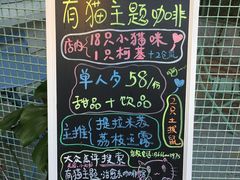 有猫主题咖啡
店内 18只小猫咪
1只柯基
单人夕 58/份
甜品+饮品
2只土拨鼠
主推 提拉米苏
荔枝玉露
大众点评搜索
有猫主题